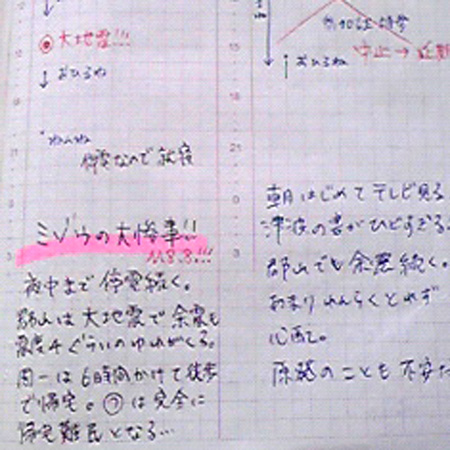 大地震!!!
↓ おひるね
ねんね
停電なので就寝
ミゾウの大惨事!!
M8.8!!!
夜中まで停電続く。
郡山は大地震で余震も
震度4ぐらいのゆれがくる。
周一は6時間かけて徒歩
で帰宅。は完全に
帰宅難民となる…
中止→延期
↑ おひるね
朝はじめてテレビ見る
津波の害がひどすぎる
郡山でも余震続く。
あまりれんらくとれず
心配。
原発のことも不安だ